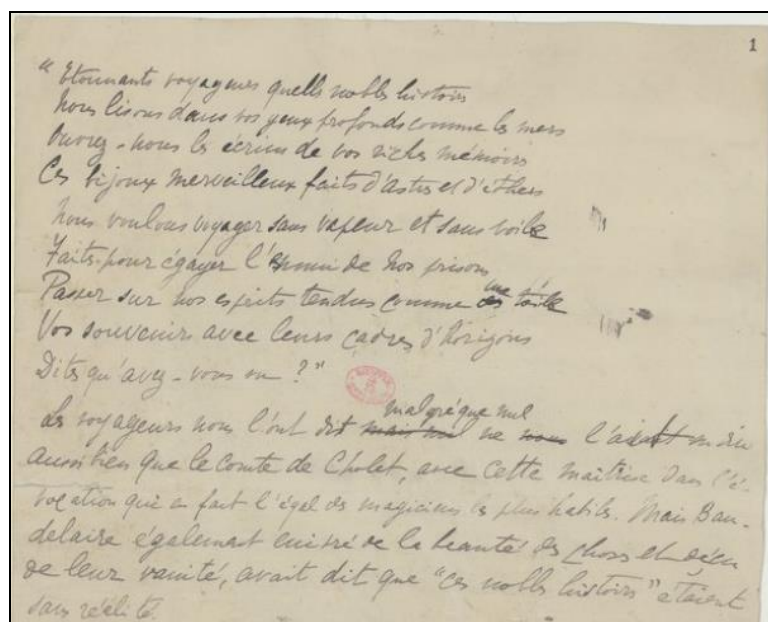 1
"Etonnants voyageurs quelles nobles histoires
Nous lisons dans vos yeux profonds comme les mers
Ouvrez-nous les écrins de vos riches mémoires
Ces bijoux merveilleux faits d'astres et d'éthers
Nous voulons voyager sans vapeur et sans voile
Faits pour égayer l'ennui de nos prisons
Passer sur nos esprits tendus comme une toile
Vos souvenirs avec leurs cadres d'horizons
Dites qu'avez-vous vu ?"
malgré que nul
Les voyageurs nous l'ont dit mais nul ne nous l'ait
aussi bien que le comte de Cholet, avec cette maîtrise dans l'é-
vocation qui en fait l'égal des magiciens les plus habiles. Mais Bau-
delaire également enivré de la beauté des choses et déçu
de leur vanité, avait dit que "ces nobles histoires" étaient
sans réalité.